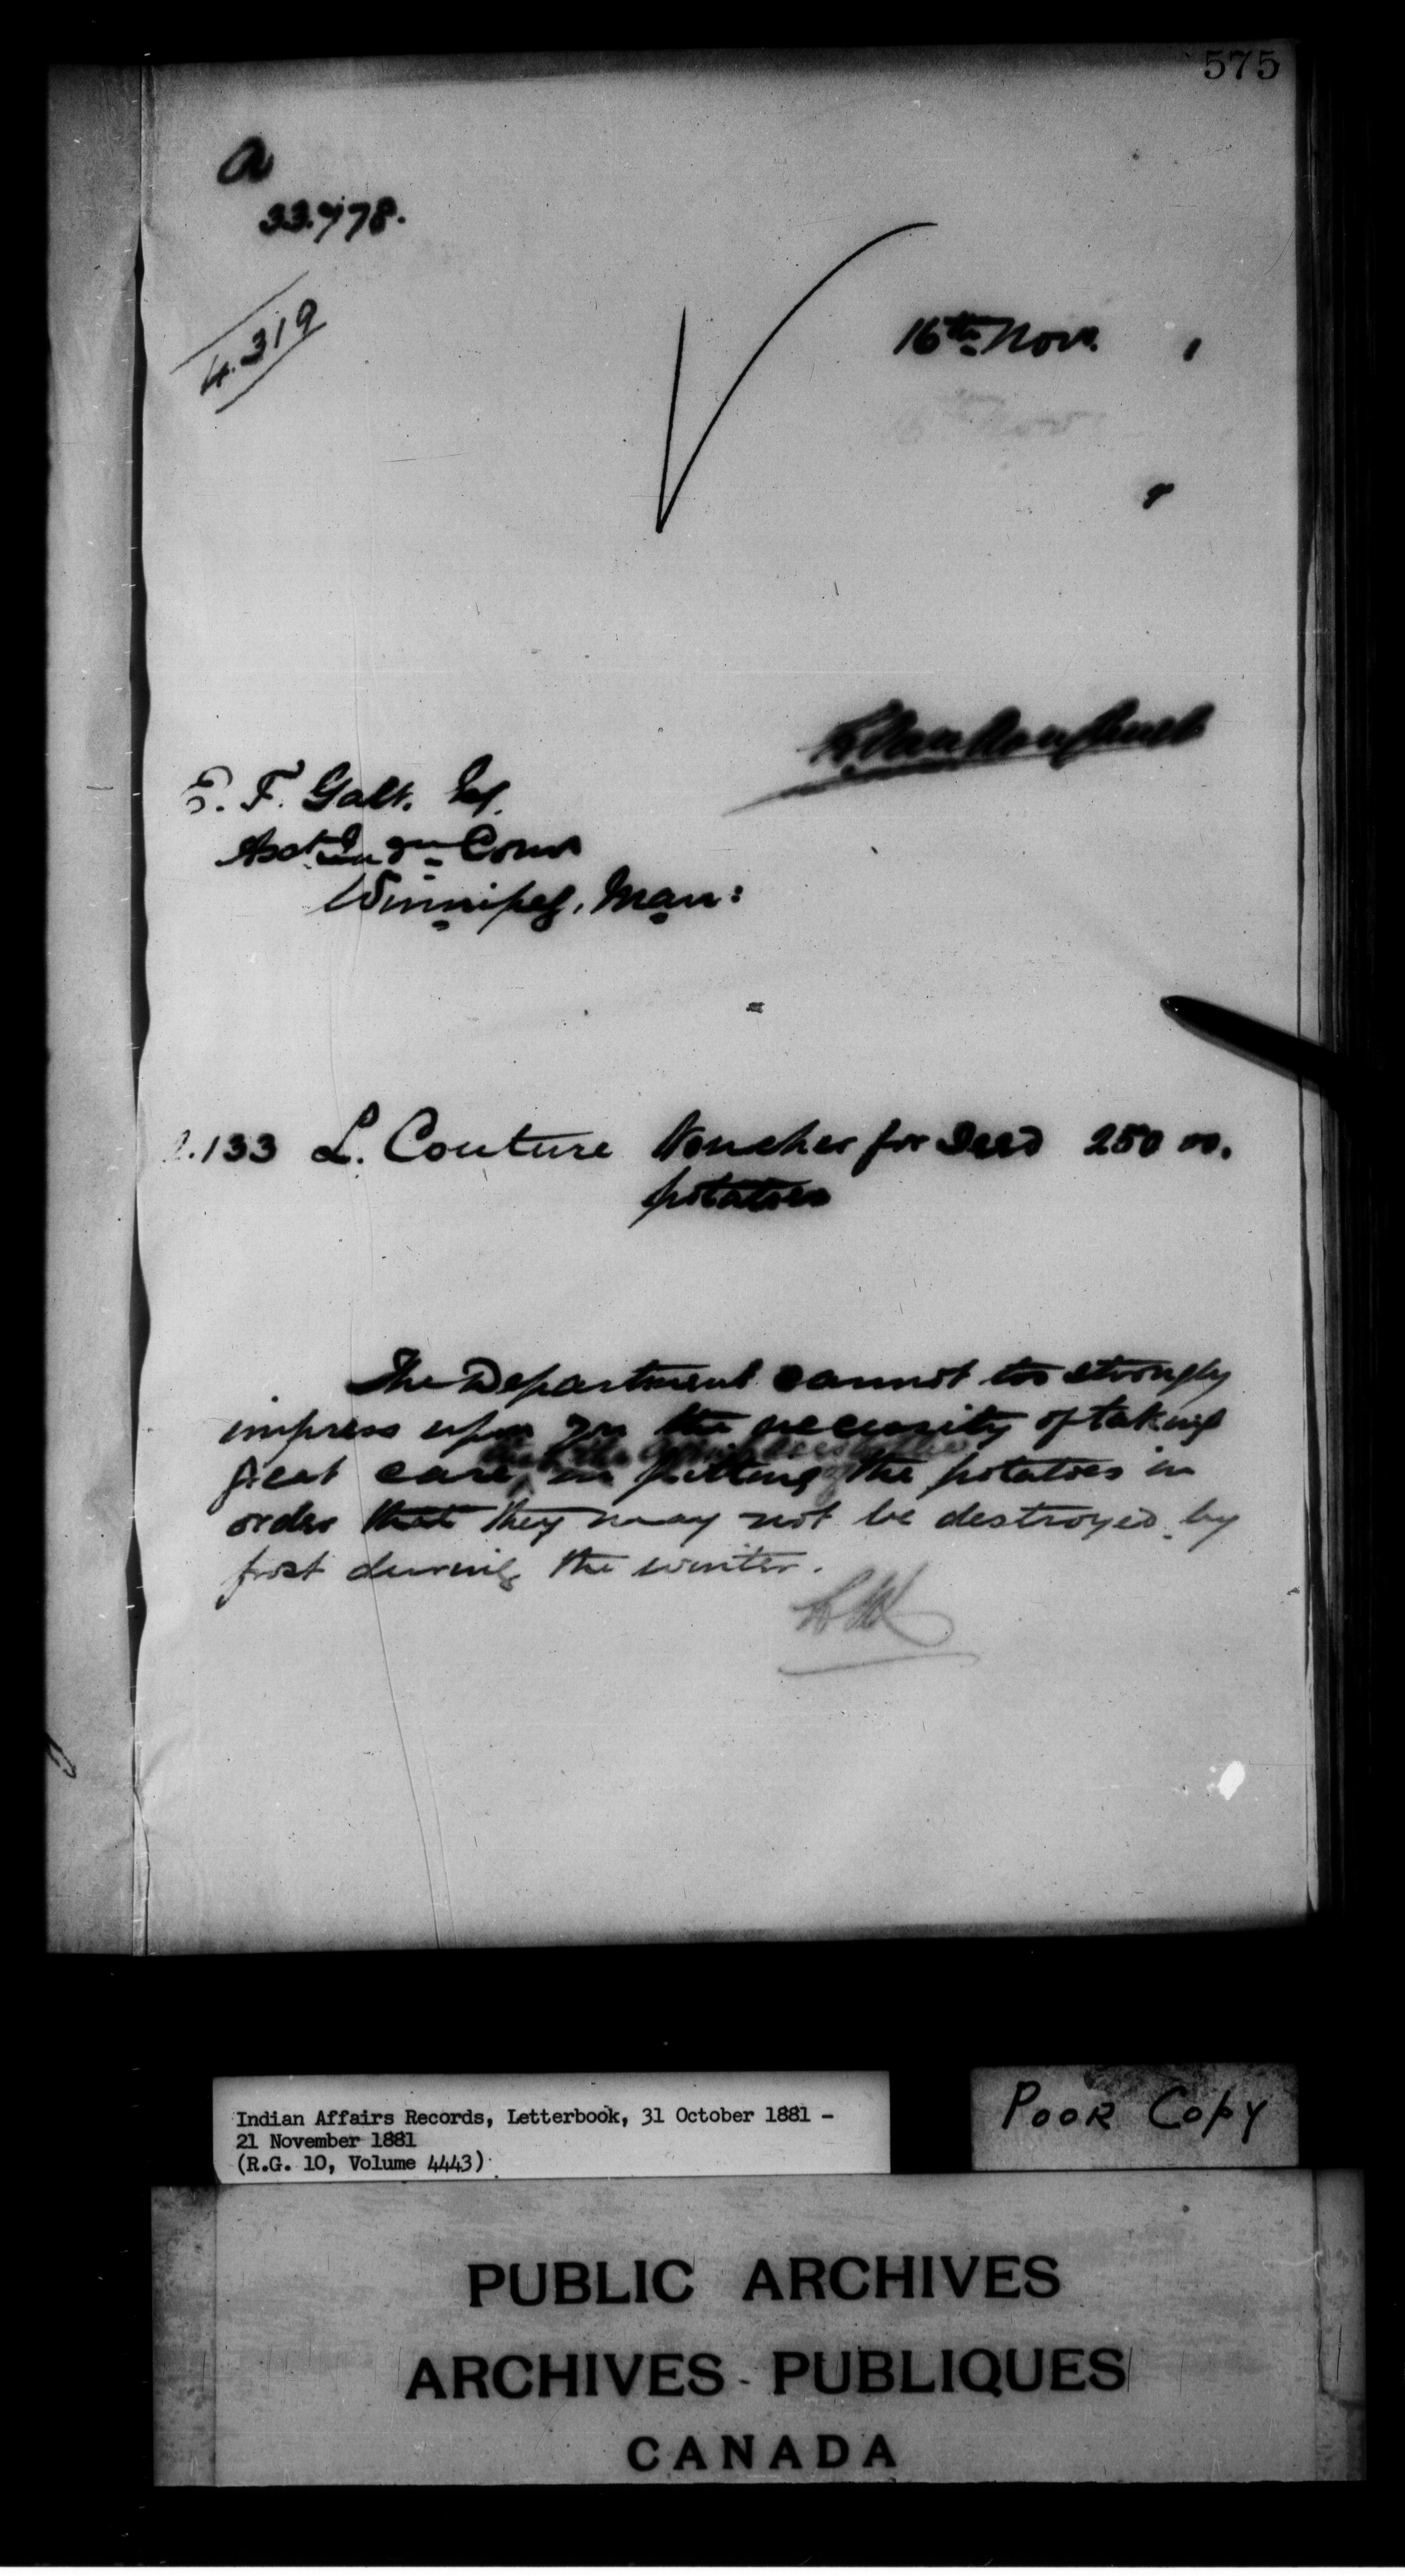 575
a
33.778.
4.319
16th Nov.
L. VanKoughnet
E. F. Galt. Esq.
Asst Indn Comr
Winnipeg, Man:
.133 L. Couture Voucher for Seed 250 00.
potatoes
The Department cannot too strongly
impress upon you the necessity of taking
great care, in pitting the potatoes in
order that they may not be destroyed by
frost during the winter.
LVK
Indian Affairs Records, Letterbook, 31 October 1881 -
21 November 1881
(R.G. 10, Volume 4443)
Poor Copy
PUBLIC ARCHIVES
ARCHIVES - PUBLIQUES
CANADA